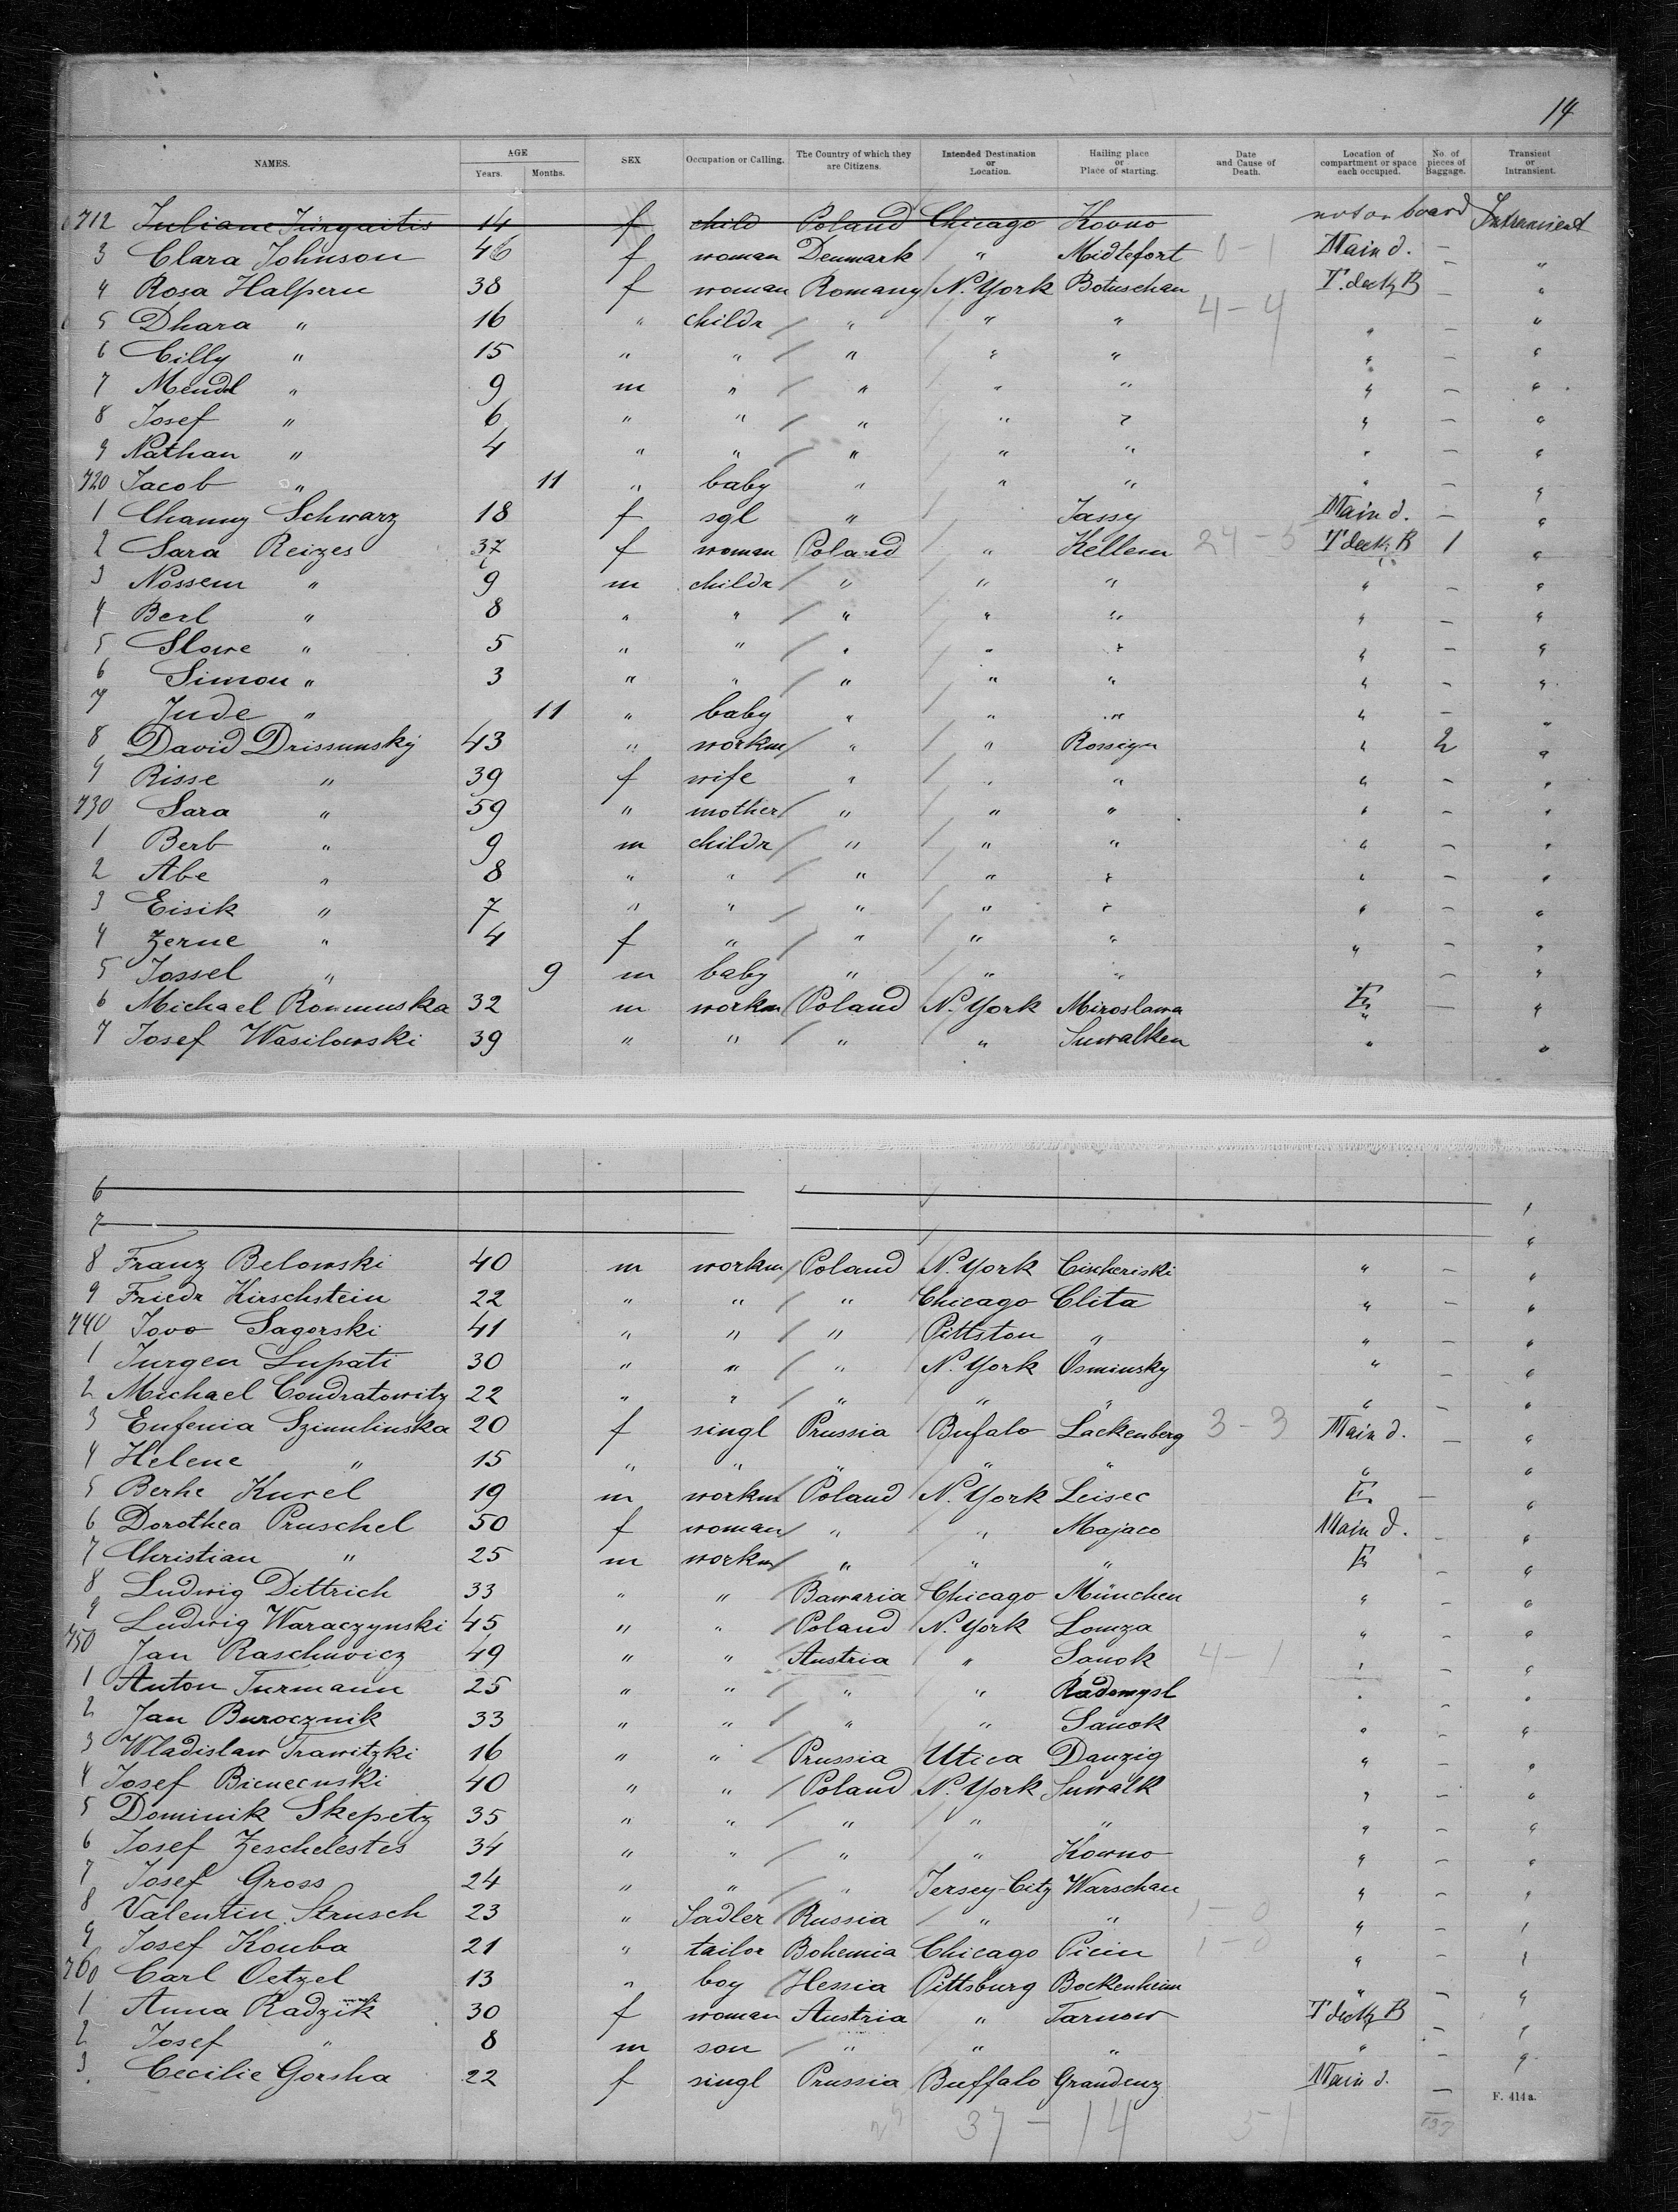 14
NAMES. AGE Years. Months. SEX Occupation or Calling. The Country of which they are Citizens. Intended Destination or Location. Hailing place or Place of starting. Date and Cause of Death. Location of compartment or space each occupied. No. of pieces of Baggage. Transient or Intransient.
712 Juliane Jurgaitis 14 f child Poland Chicago Kovno not on board Intransient
3 Clara Johnson 46 f woman Denmark " Midtefort 0-1 Main d. — "
4 Rosa Halpern 38 f woman Romany N. York Botuschan T. deck B — "
5 Dhara " 16 " childr " " " 4-4 " — "
6 Cilly " 15 " " " " " " — "
7 Mendl " 9 m " " " " " — "
8 Josef " 6 " " " " " " — "
9 Nathan " 4 " " " " " " — "
720 Jacob " 11 " baby " " " " — "
1 Channy Schwarz 18 f sgl " Jassy Main d. — "
2 Sara Reizes 37 f woman Poland " Kellem 24-5 T deck B 1 "
3 Nossem " 9 m childr " " " " — "
4 Berl " 8 " " " " " " — "
5 Slowe " 5 " " " " " " — "
6 Simon " 3 " " " " " " — "
7 Jude " 11 " baby " " " " — "
8 David Drissunsky 43 " workm " " Rossign " 2 "
9 Risse " 39 f wife " " " " — "
730 Sara " 59 " mother " " " " — "
1 Berb " 9 m childr " " " " — "
2 Abe " 8 " " " " " " — "
3 Eisik " 7 " " " " " " — "
4 Zerne " 4 f " " " " " "
5 Jossel " 9 m baby " " " — "
6 Michael Rommuska 32 m workm Poland N. York Miroslawa E — "
7 Josef Wasilowski 39 " " " " Suwalken " "
6
7
8 Franz Belowski 40 m workm Poland N. York Cischeriski " — "
9 Friedr Kirschstein 22 " " " Chicago Clita " — "
740 Jovo Sagorski 41 " " " Pittston " " — "
1 Jurgen Lupati 30 " " " N. York Osminsky " — "
2 Michael Condratowitz 22 " " " " " " — "
3 Eufenia Szimulinska 20 f singl Prussia Bufalo Lackenberg 3-3 Main d. — "
4 Helene " 15 " " " " " " "
5 Berhe Kurel 19 m workm Poland N. York Leisec E — "
6 Dorothea Pruschel 50 f woman " " Majaco Main d. — "
7 Christian " 25 m workm " " " E — "
8 Ludwig Dittrich 33 " " Bawaria Chicago München " — "
9 Ludwig Waraczynski 45 " " Poland N. York Lomza " — "
750 Jan Raschwicz 49 " " Austria " Sanok 4-1 " — "
1 Anton Turmann 25 " " " " Radomysl " — "
2 Jan Burocznik 33 " " " " Sanok " — "
3 Wladislaw Trawitzki 16 " " Prussia Utica Danzig " — "
4 Josef Bieneenski 40 " " Poland N. York Suwalk " — "
5 Dominik Skepetz 35 " " " " " " — "
6 Josef Zeschelestes 34 " " " " Kowno " — "
7 Josef Gross 24 " " " Jersey-City Warschau " — "
8 Valentin Strusch 23 " Sadler Russia " " 1-0 " — "
9 Josef Kouba 21 " tailor Bohemia Chicago Picin 1-0 " — "
760 Carl Oetzel 13 " boy Hessia Pittsburg Bockenheim " — "
1 Anna Radzik 30 f woman Austria " Tarnow T deck B — "
2 Josef " 8 m son " " " " — "
3 Cecilie Gorsha 22 f singl Prussia Buffalo Graudenz Main d. —
F. 414 a.
37-14 51 137